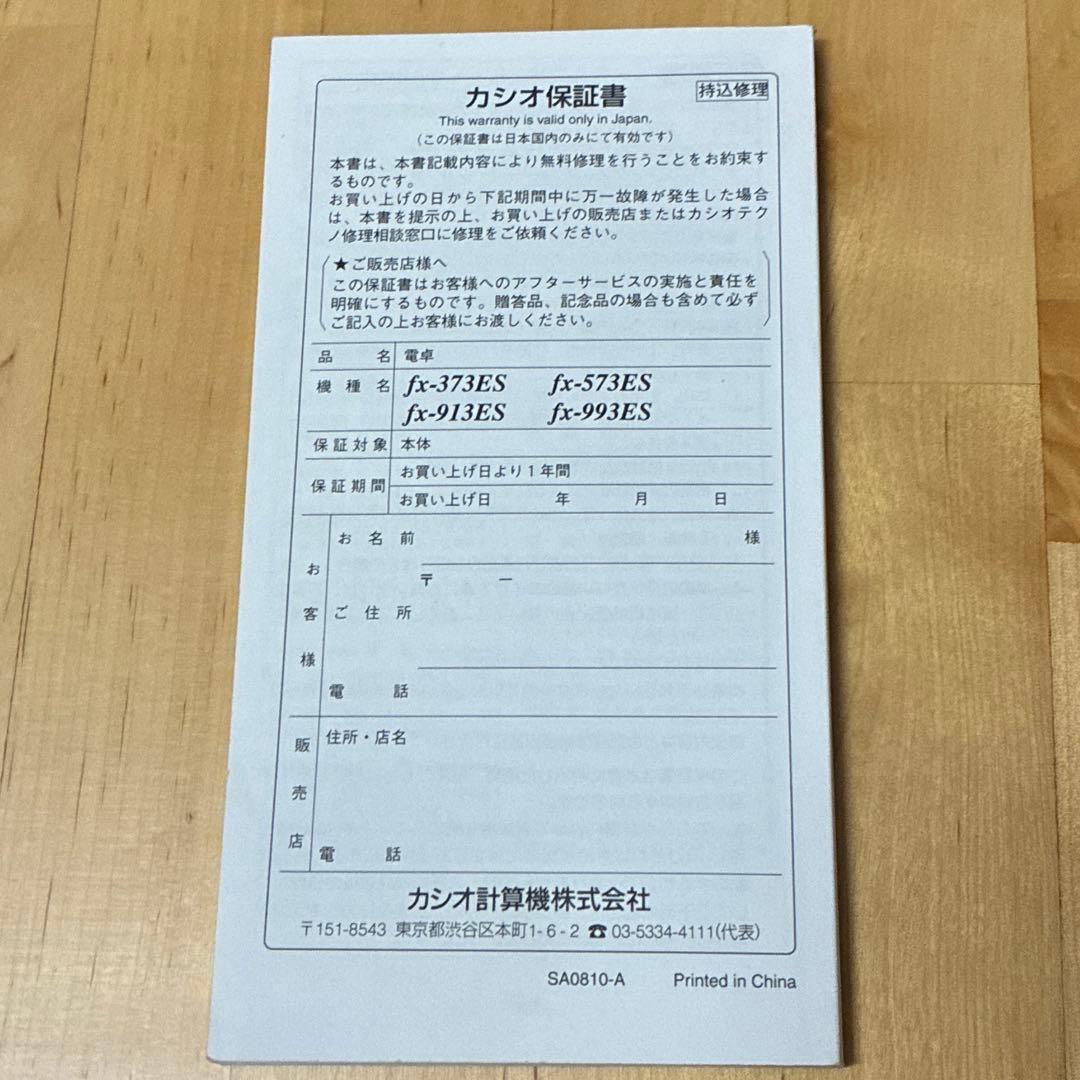 カシオ保証書
持込修理
This warranty is valid only in Japan.
(この保証書は日本国内のみにて有効です)
本書は、本書記載内容により無料修理を行うことをお約束す
るものです。
お買い上げの日から下記期間中に万一故障が発生した場合
は、本書を提示の上、お買い上げの販売店またはカシオテク
ノ修理相談窓口に修理をご依頼ください。
★ご販売店様へ
この保証書はお客様へのアフターサービスの実施と責任を
明確にするものです。贈答品、記念品の場合も含めて必ず
ご記入の上お客様にお渡しください。
品名 電卓
機種名 fx-373ES fx-573ES
fx-913ES fx-993ES
保証対象 本体
保証期間 お買い上げ日より1年間
お買い上げ日 年 月 日
お客様
お名前 様
〒 ー
ご住所
電話
販売店
住所・店名
電話
カシオ計算機株式会社
〒151-8543 東京都渋谷区本町1-6-2 ☎ 03-5334-4111(代表)
SA0810-A Printed in China